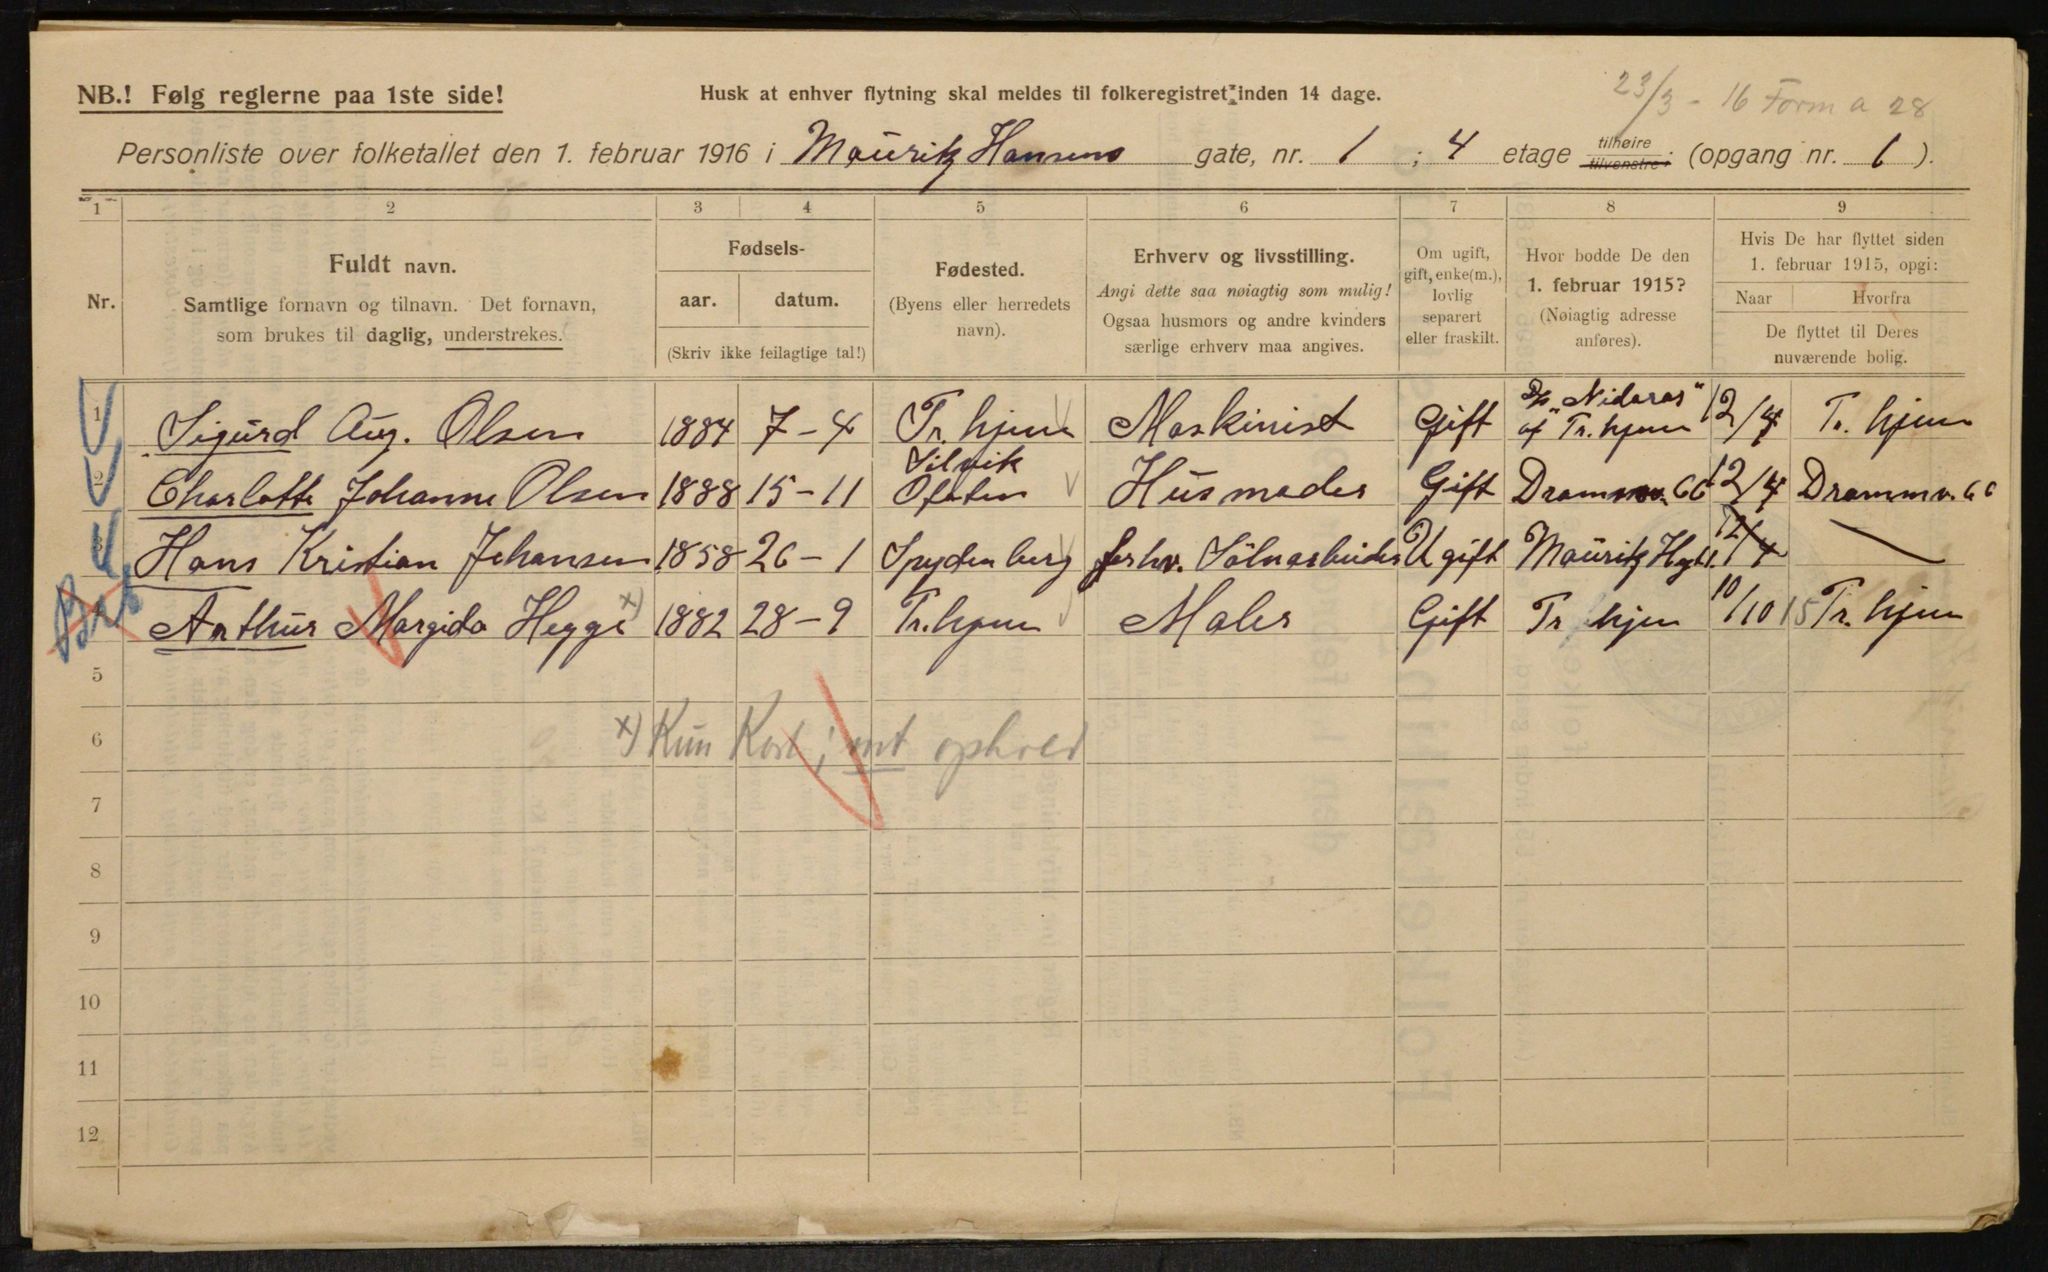 23/3 - 16 Form a 28
NB.! Følg reglerne paa 1ste side! Husk at enhver flytning skal meldes til folkeregistret inden 14 dage.
Personliste over folketallet den 1. februar 1916 i Mauritz Hansens gate, nr. 1 ; 4 etage tilhøire tilvenstre; (opgang nr. 1 ).
1 2 3 4 5 6 7 8 9
Nr.
Fuldt navn.
Samtlige fornavn og tilnavn. Det fornavn,
som brukes til daglig, understrekes.
Fødsels-
aar. datum.
(Skriv ikke feilagtige tal!)
Fødested.
(Byens eller herredets
navn).
Erhverv og livsstilling.
Angi dette saa nøiagtig som mulig!
Ogsaa husmors og andre kvinders
særlige erhverv maa angives.
Om ugift,
gift, enke(m.),
lovlig
separert
eller fraskilt.
Hvor bodde De den
1. februar 1915?
(Nøiagtig adresse
anføres).
Hvis De har flyttet siden
1. februar 1915, opgi:
Naar Hvorfra
De flyttet til Deres
nuværende bolig.
1 Sigurd Aug. Olsen 1884 7-4 Tr. hjem Maskinist Gift "Nidaros" af Tr. hjem 12/4 Tr. hjem
2 Charlotte Johanne Olsen 1888 15-11 Ofoten Husmoder Gift Drammv. 66 12/4 Drammv. 66
3 Hans Kristian Johansen 1858 26-1 Spydeberg forhv. Sölvarbeider Ugift Mauritz Hgt 1. 12/4 —
4 Arthur Margido Hegge x) 1882 28-9 Tr. hjem Maler Gift Tr hjem 10/10 15 Tr. hjem
5
6 x) Kun Kost; int ophold
7
8
9
10
11
12